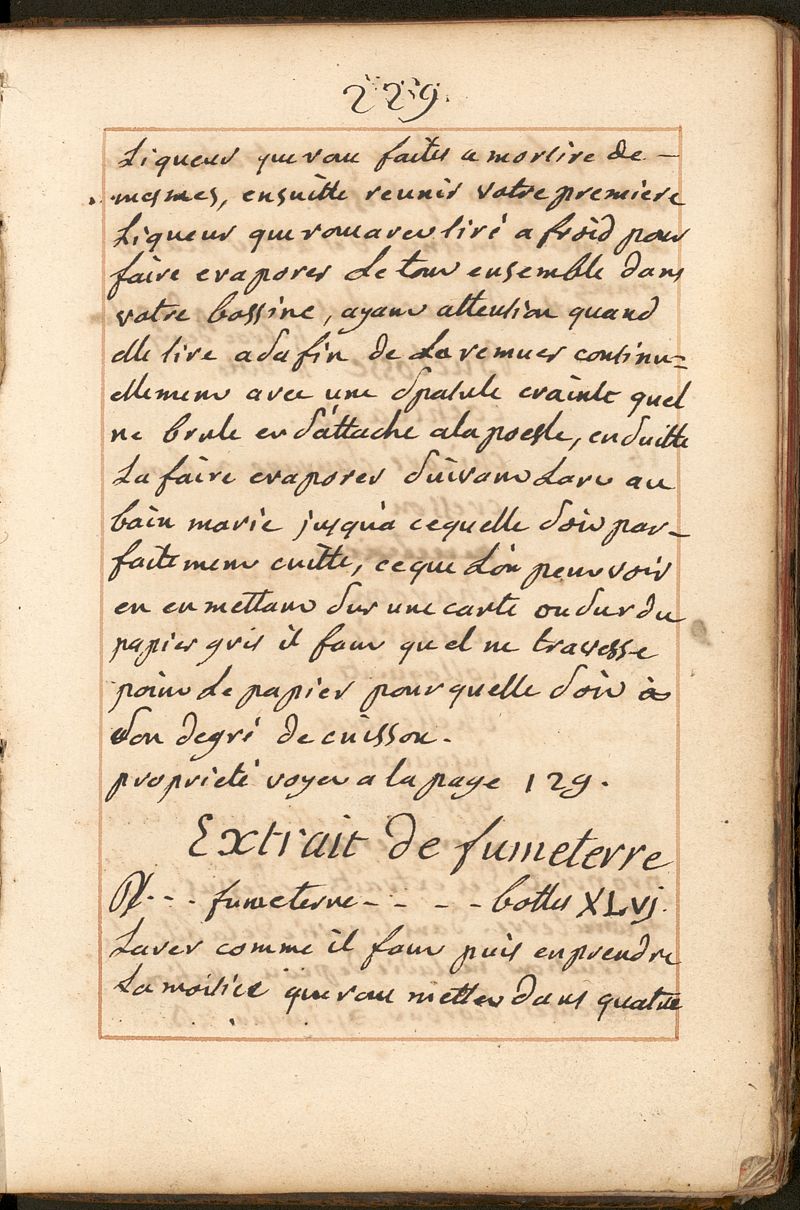 229.
Liqueur que vous faites amortire de —
mesmes, ensuitte reunir votre premiere
Liqueur que vous avez tiré a froid pour
faire evaporer Le tout ensemble dans
votre bassine, ayant attention quand
elle tire a sa fin de La remuer continu=
ellement avec une spatule crainte quel
ne brule et s'attache a la poesle, ensuitte
La faire evaporer suivant Lart au
bain marie jusqua cequelle soit par-
faitement cuitte, ce que L'on peut voir
en en mettant sur une carte ou sur du
papier gris il faut quel ne traverse
point Le papier pour quelle soit a
son degré de cuisson.
proprieté voyez a la page 129.
Extrait de fumeterre
℞ - - - fumeterre - - - - bottes XLVj.
Laver comme il faut puis en prendre
La moitiee que vous mettez dans quatre